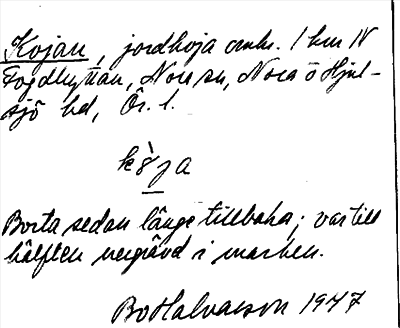 Kojan, jordkoja omkr. 1 km N
Fogdhyttan, Nora sn, Nora o Hjul-
sjö bd, Ör. l.
kòja
Borta sedan länge tillbaka; var till
hälften nergrävd i marken.
Bo Halvarson 1947